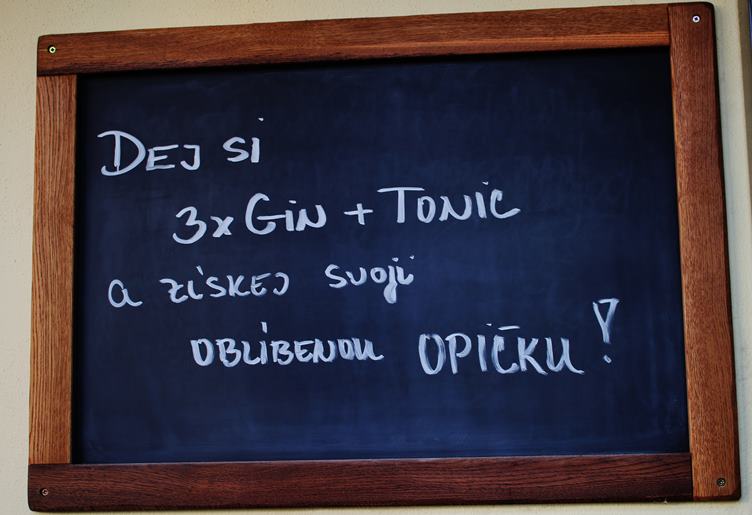 DEJ SI
3x GIN + TONIC
a ZÍSKEJ SVOJI
OBLÍBENOU OPIČKU!